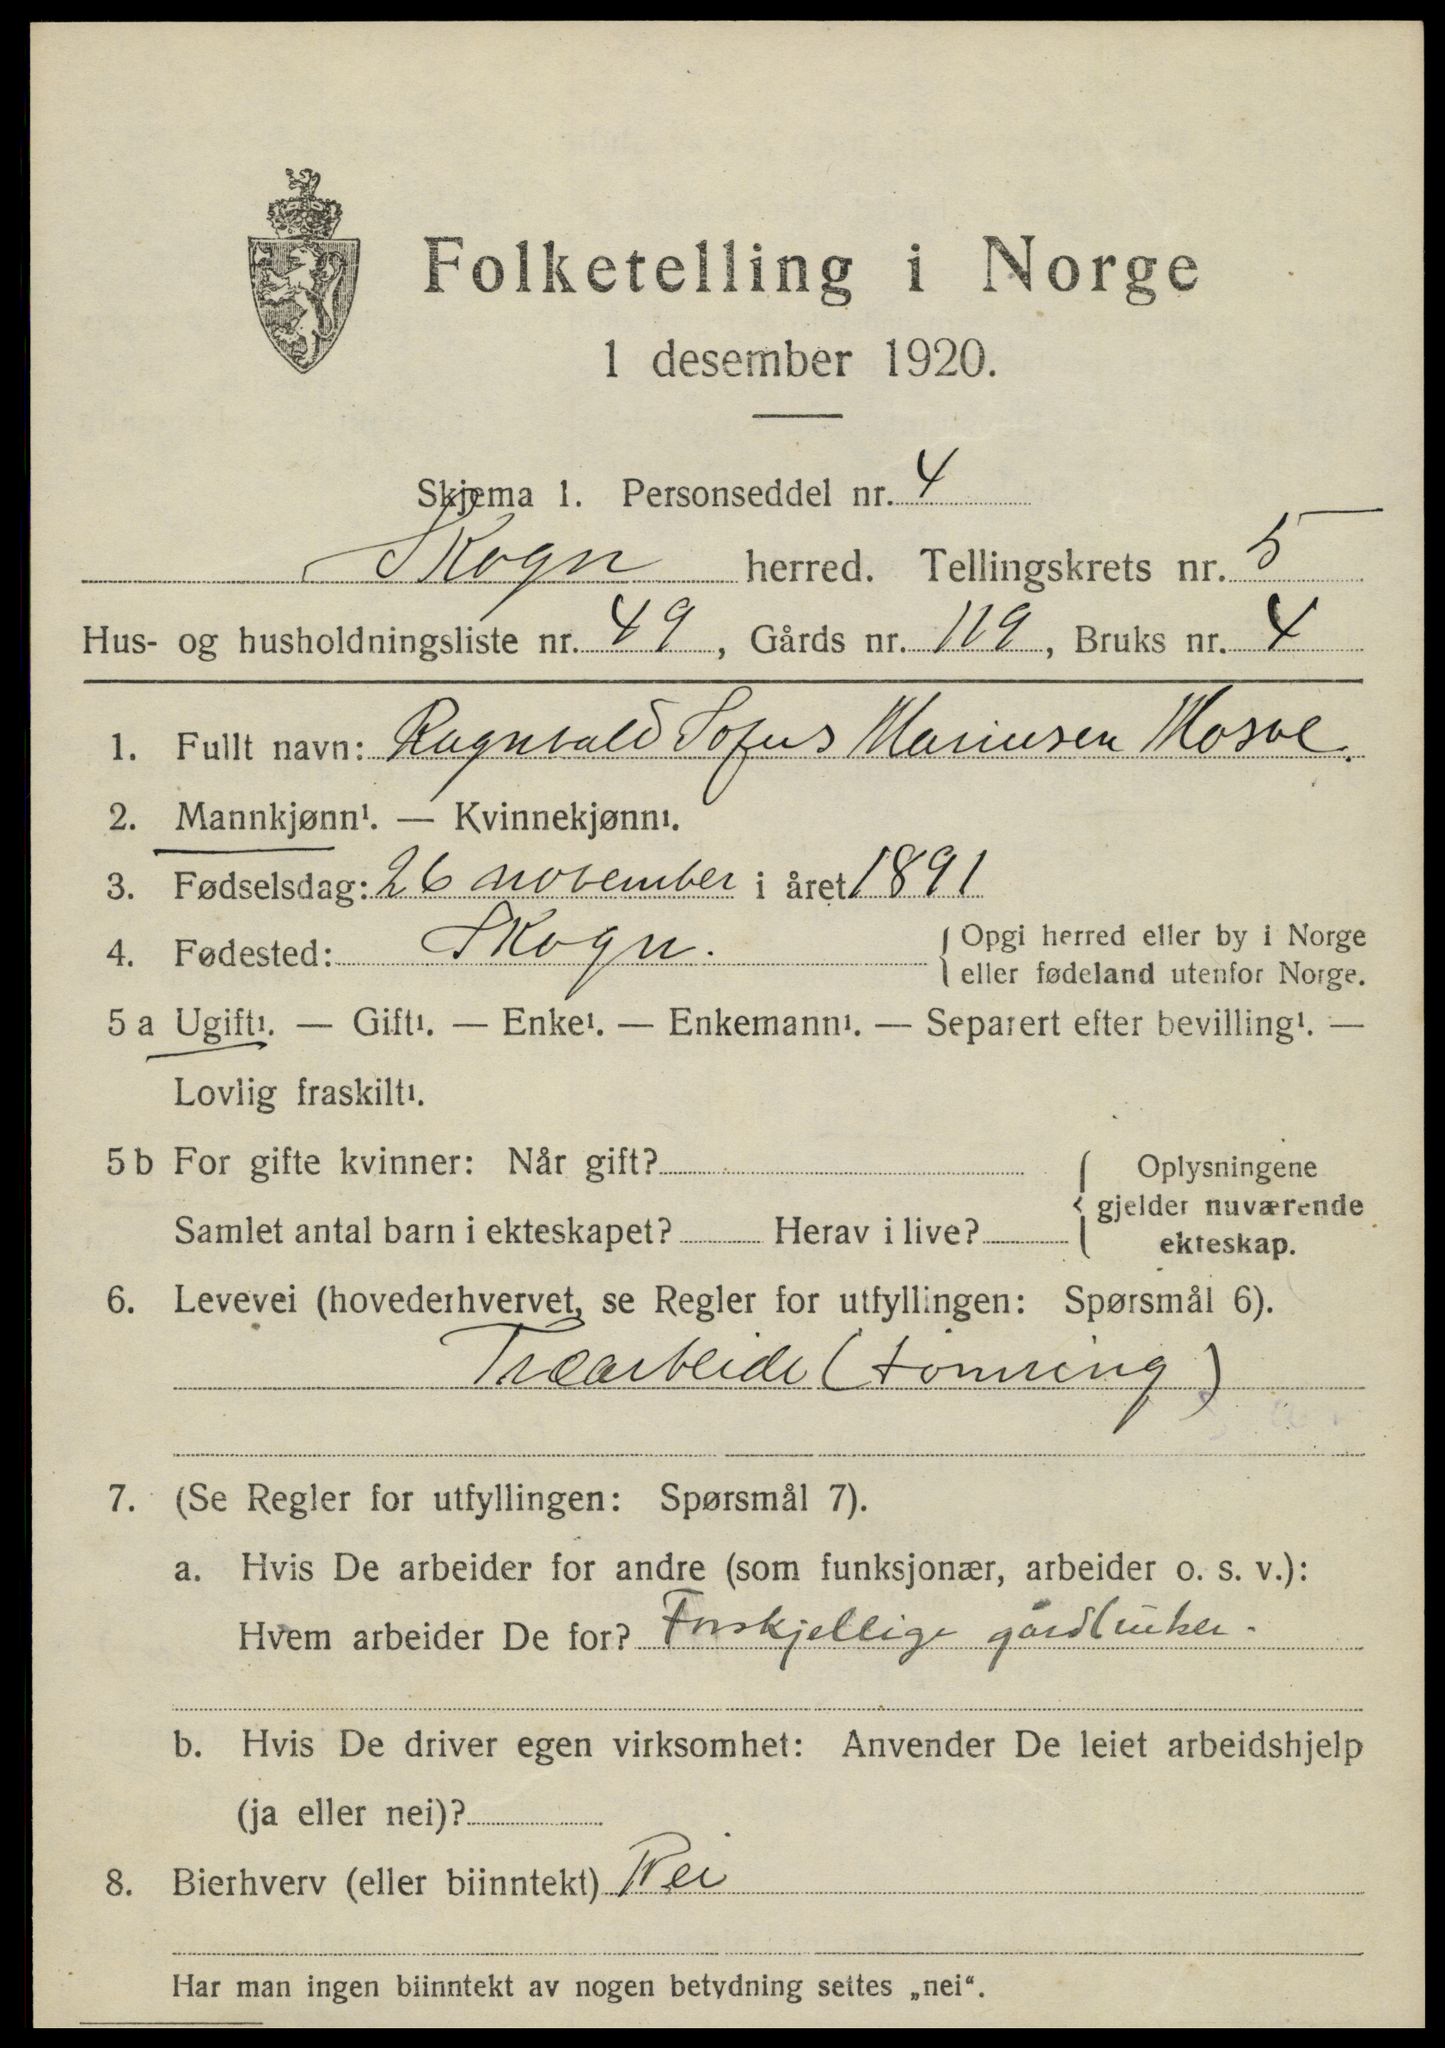 Folketelling i Norge
1 desember 1920.
Skjema 1. Personseddel nr. 4
Skogn herred. Tellingskrets nr. 5
Hus- og husholdningsliste nr. 49, Gårds nr. 119, Bruks nr. 4
1. Fullt navn: Ragnvald Sofus Mariusen Mosve.
2. Mannkjønn¹. — Kvinnekjønn¹.
3. Fødselsdag: 26 november i året 1891
4. Fødested: Skogn. { Opgi herred eller by i Norge
eller fødeland utenfor Norge.
5 a Ugift¹. — Gift¹. — Enke¹. — Enkemann¹. — Separert efter bevilling¹. —
Lovlig fraskilt¹.
5 b For gifte kvinner: Når gift?
Samlet antal barn i ekteskapet? Herav i live?
{ Oplysningene
gjelder nuværende
ekteskap.
6. Levevei (hovederhvervet, se Regler for utfyllingen: Spørsmål 6).
Træarbeide (tømring)
7. (Se Regler for utfyllingen: Spørsmål 7).
a. Hvis De arbeider for andre (som funksjonær, arbeider o. s. v.):
Hvem arbeider De for? Forskjellige gårdbruker.
b. Hvis De driver egen virksomhet: Anvender De leiet arbeidshjelp
(ja eller nei)?
8. Bierhverv (eller biinntekt) Nei
Har man ingen biinntekt av nogen betydning settes „nei“.